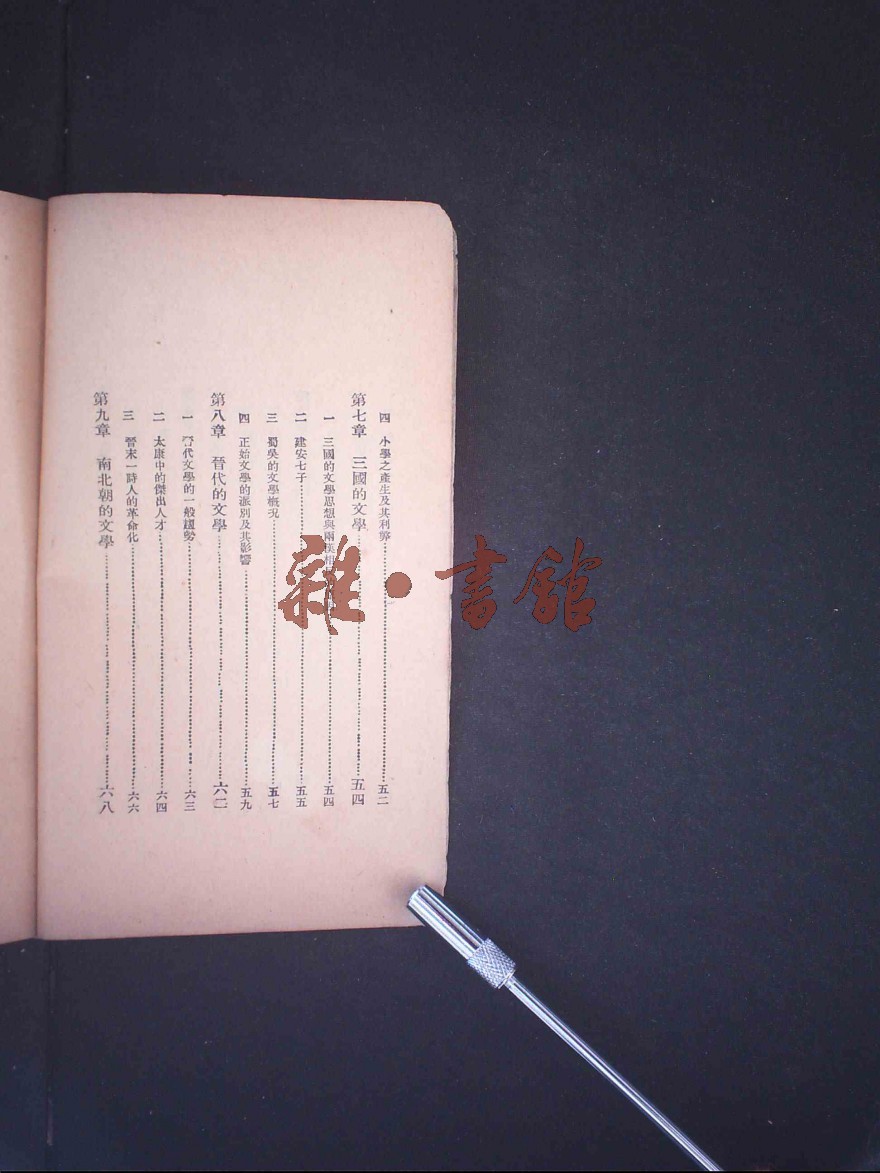 四　小學之產生及其利弊……五二
第七章　三國的文學……五四
一　三國的文學思想與兩漢相……五四
二　建安七子……五五
三　蜀吳的文學概況……五七
四　正始文學的派別及其影響……五九
第八章　晉代的文學……六二
一　晉代文學的一般趨勢……六三
二　太康中的傑出人才……六四
三　晉末一時人的革命化……六六
第九章　南北朝的文學……六八
雜·書館